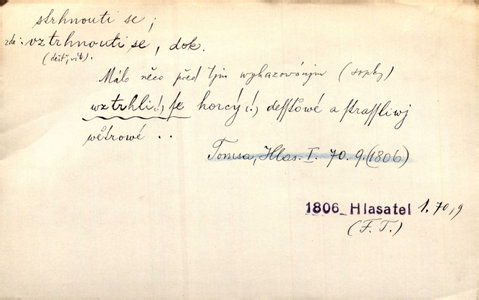 strhnouti se;
zde: vztrhnouti se, dok.
(déšť, vítr).
Málo něco před tjm wyhazowánjm (sopky)
wztrhli(!) se horcý(!) desstowé a strassliwj
wětrowé ..
Tomsa, Hlas. I. 70. 9. (1806)
1806 Hlasatel 1. 70, 9
(F. T.)